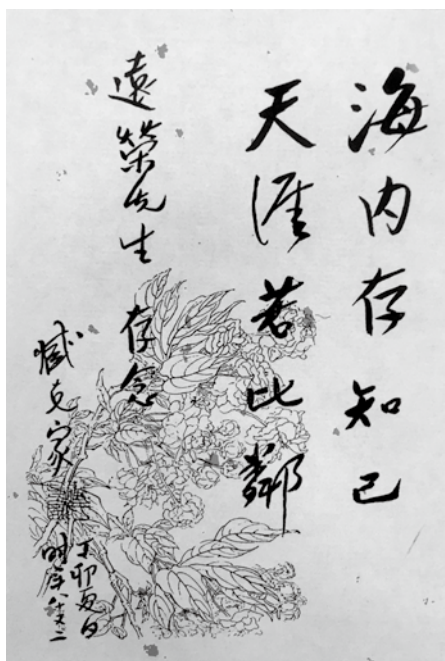 海内存知己
天涯若比鄰
遠榮先生 存念
臧克家
丁卯夏日
時年八十又二